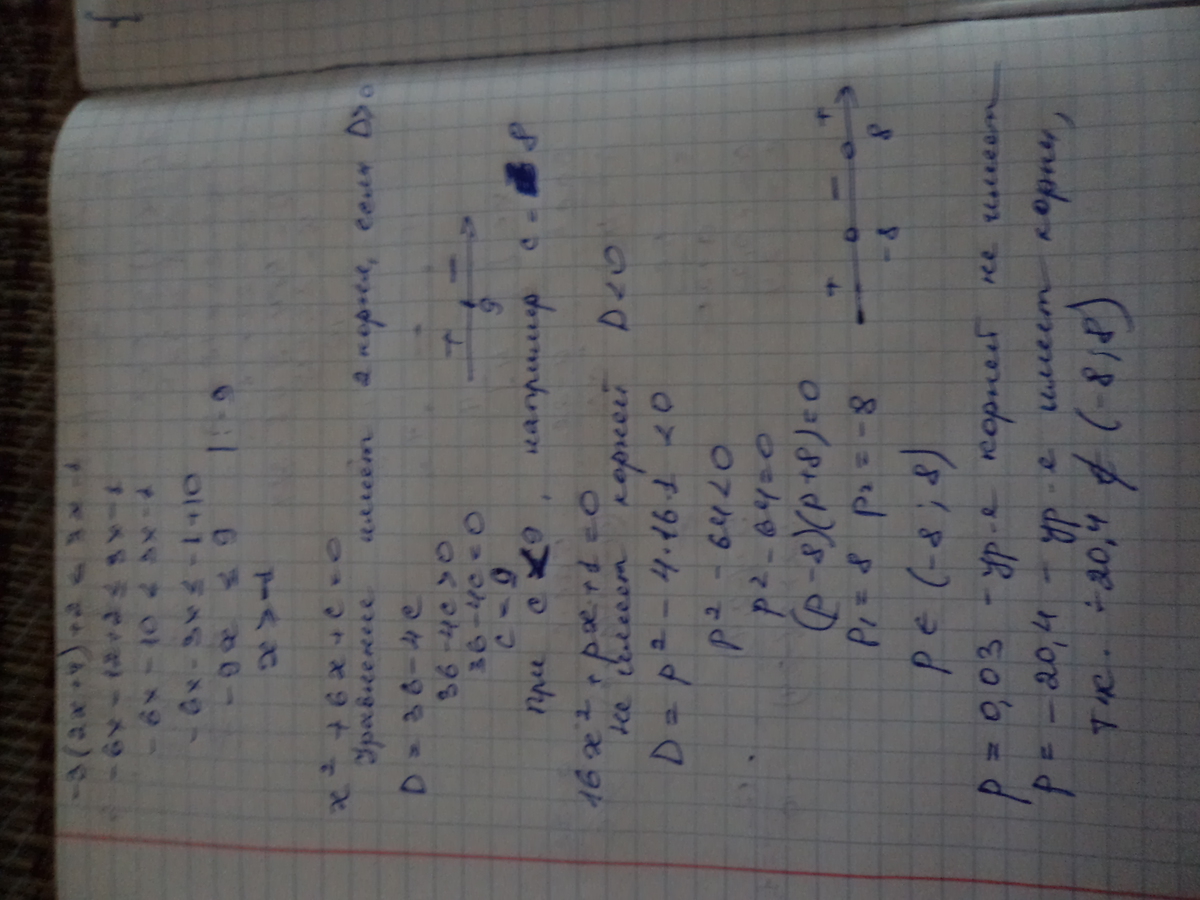 -3(2x+4)+2 ≤ 3x-1
-6x-12+2 ≤ 3x-1
-6x-10 ≤ 3x-1
-6x-3x ≤ -1+10
-9x ≤ 9 |:-9
x ≥ -1
x² + 6x + c = 0
Уравнение имеет 2 корня, если D>0
D = 36-4c
36-4c>0
36-4c=0
c=9
+ -
9
при c<9, например c = 8
16x² + px + 1 = 0
не имеет корней D<0
D = p² - 4·16·1 < 0
p² - 64 < 0
p² - 64 = 0
(p-8)(p+8)=0
p₁ = 8 p₂ = -8
+ - +
-8 8
p ∈ (-8; 8)
p = 0,03 - ур-е корней не имеет
p = -20,4 - ур-е имеет корни,
т.к. -20,4 ∉ (-8; 8)